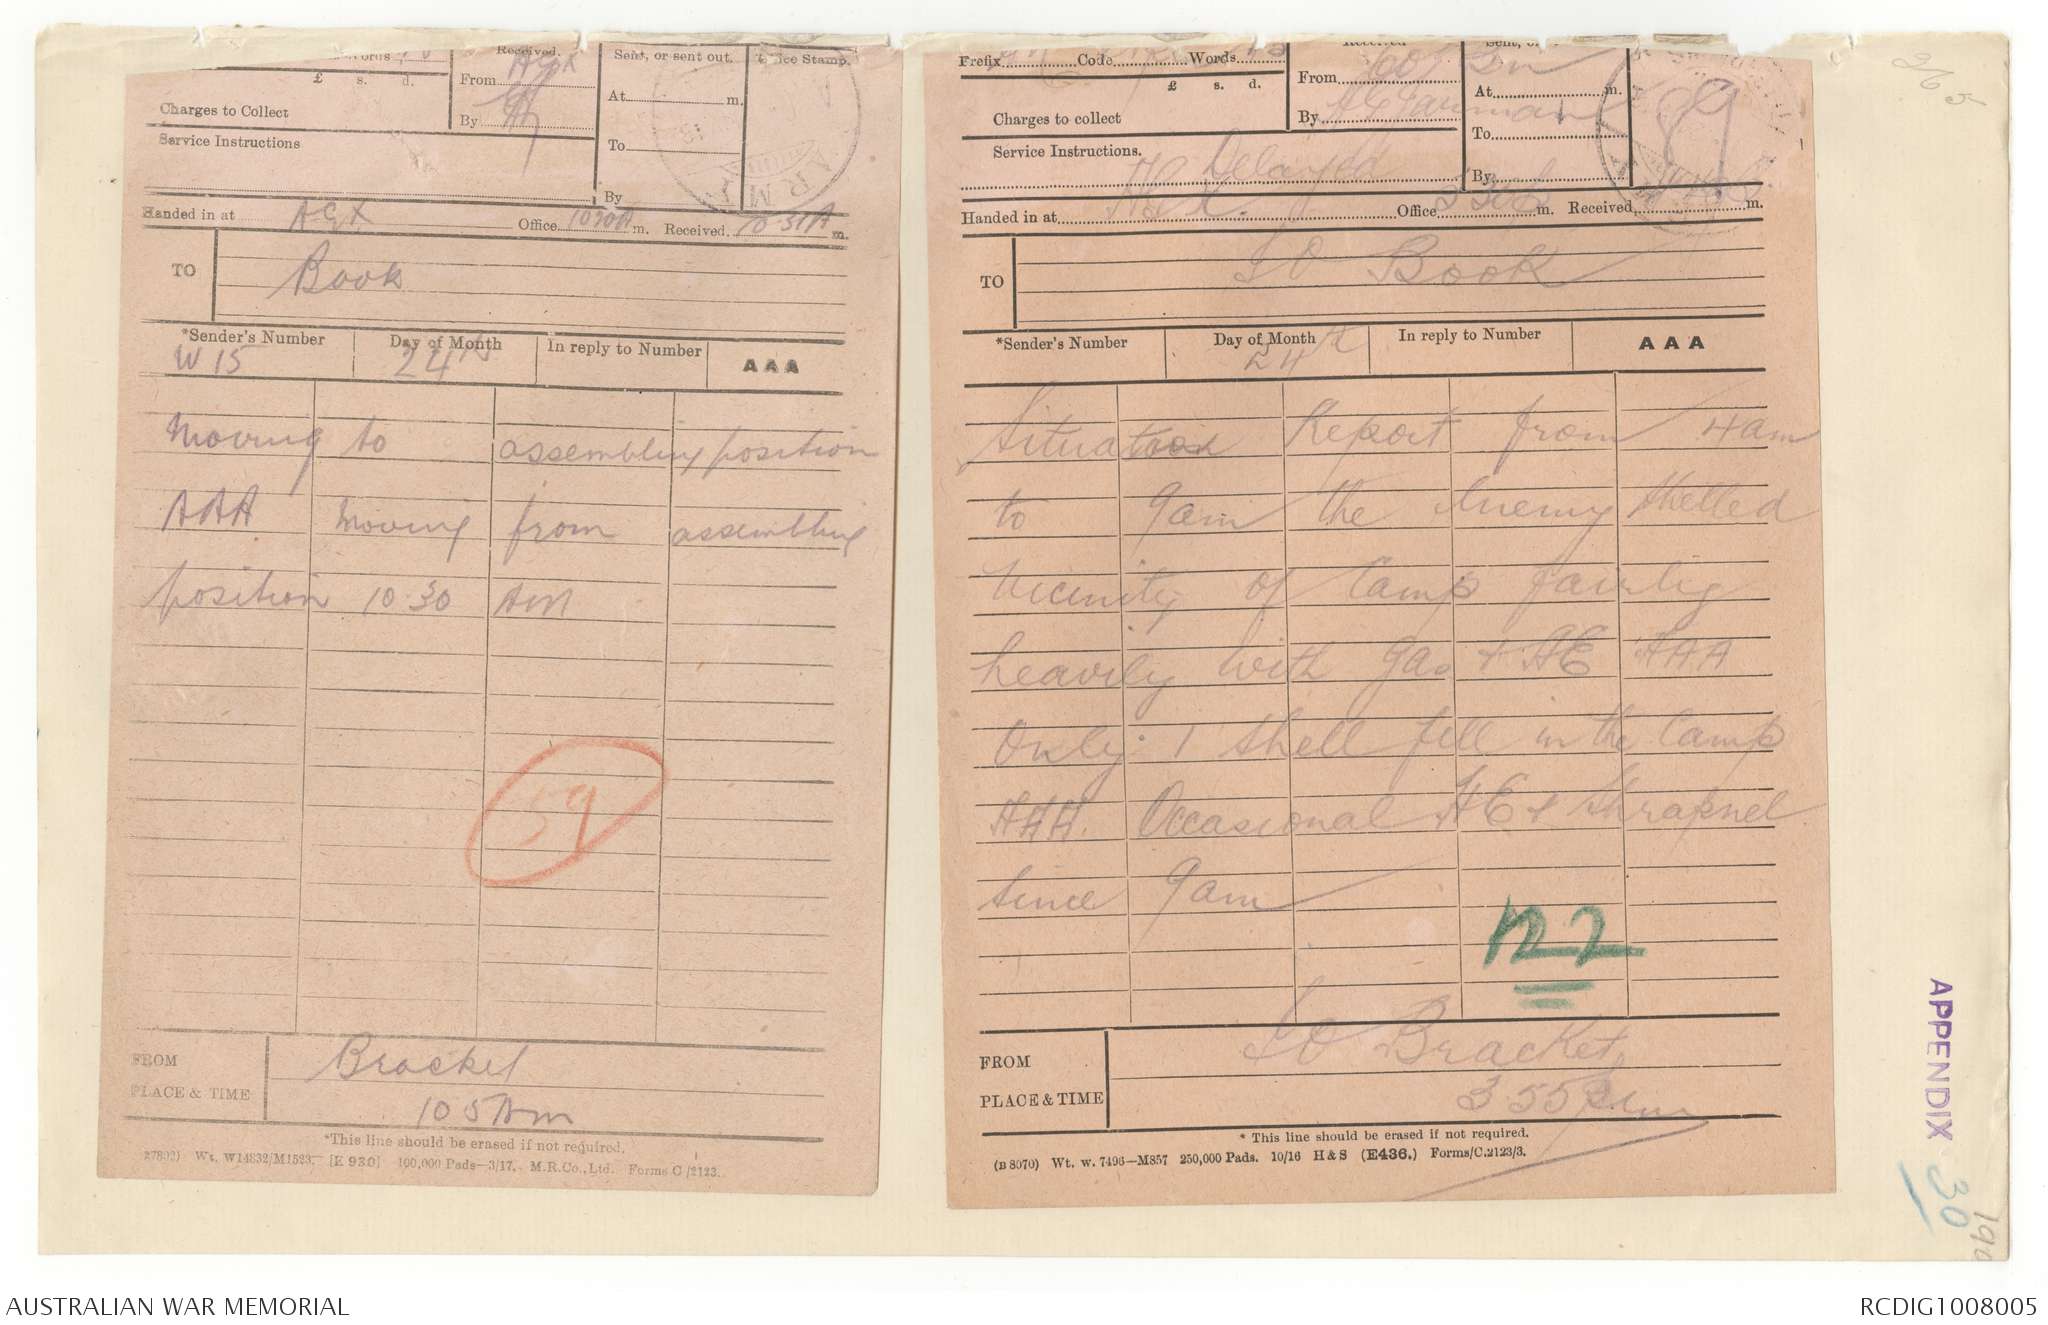 Words
Received.
£ s. d.
AGX
From
By
Charges to Collect
Service Instructions
Sent, or sent out.
At m.
To
By
Office Stamp.
Handed in at AGX Office 1030A m. Received 10 31A m.
TO Book
*Sender's Number
W 15
Day of Month
24th
In reply to Number
AAA
Moving to assembling position
AAA Moving from assembling
position 10.30 AM
59
FROM Bracket
PLACE & TIME 10 5 Am
*This line should be erased if not required.
27802) Wt. W14832/M1523. [E 930] 100,000 Pads—3/17. M.R.Co., Ltd. Forms C/2123.
265
Prefix Code Words
£ s. d.
Charges to collect
Service Instructions. Delayed
Received
From
By
At m.
To
By
89
Handed in at Office m. Received m.
TO IO Book
*Sender's Number
Day of Month
24th
In reply to Number
AAA
Situation Report from 4am
to 9am the Enemy Shelled
Vicinity of Camp fairly
heavily with gas & HE AAA
Only 1 shell fell in the Camp
AAA Occasional HE & Shrapnel
since 9am
122
FROM IO Bracket
PLACE & TIME 3.55 pm
* This line should be erased if not required.
(B 8070) Wt. w. 7496—M857 250,000 Pads. 10/16 H & S (E436.) Forms/C.2123/3.
APPENDIX 30
AUSTRALIAN WAR MEMORIAL
RCDIG1008005